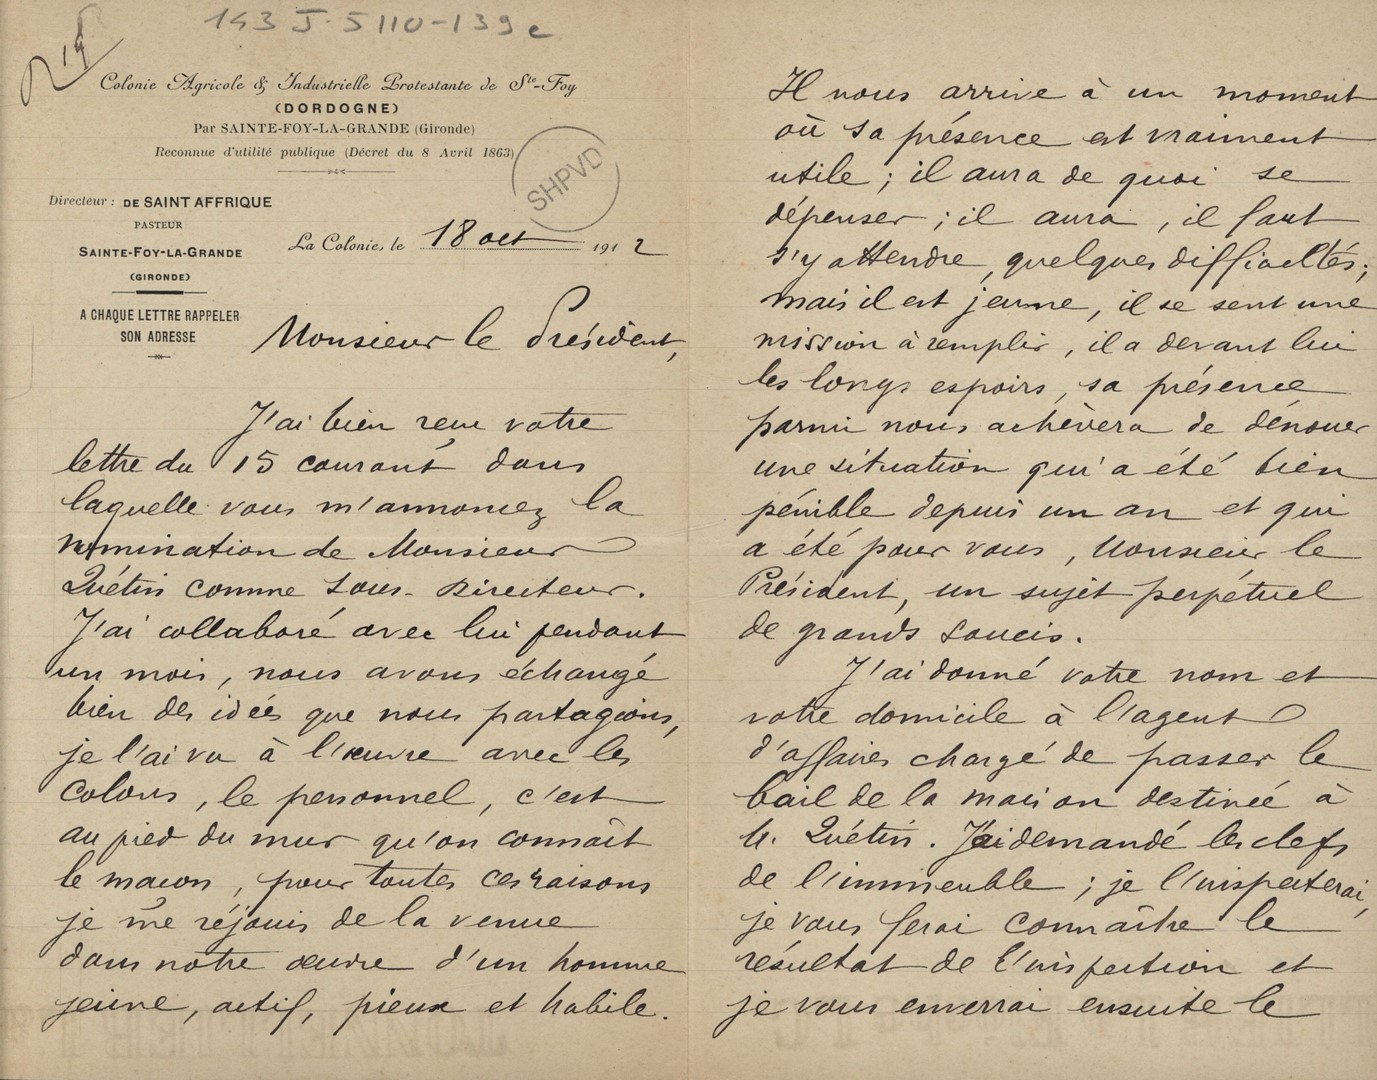 143 J. 5110-139 e
Colonie Agricole & Industrielle Protestante de Ste-Foy
(DORDOGNE)
Par SAINTE-FOY-LA-GRANDE (Gironde)
Reconnue d'utilité publique (Décret du 8 Avril 1863)
SHPVD
Directeur : DE SAINT AFFRIQUE
PASTEUR
SAINTE-FOY-LA-GRANDE
(GIRONDE)
A CHAQUE LETTRE RAPPELER
SON ADRESSE
La Colonie, le 18 oct 1912
Monsieur le Président,
J'ai bien reçu votre
lettre du 15 courant dans
laquelle vous m'annoncez la
nomination de Monsieur
Quétin comme Sous-Directeur.
J'ai collaboré avec lui pendant
un mois, nous avons échangé
bien des idées que nous partagions,
je l'ai vu à l'œuvre avec les
colons, le personnel, c'est
au pied du mur qu'on connaît
le maçon, pour toutes ces raisons
je me réjouis de la venue
dans notre œuvre d'un homme
jeune, actif, pieux et habile.
Il nous arrive à un moment
où sa présence est vraiment
utile ; il aura de quoi se
dépenser ; il aura, il faut
s'y attendre, quelques difficultés ;
mais il est jeune, il se sent une
mission à remplir, il a devant lui
les longs espoirs, sa présence
parmi nous achèvera de dénouer
une situation qui a été bien
pénible depuis un an et qui
a été pour vous, Monsieur le
Président, un sujet perpétuel
de grands soucis.
J'ai donné votre nom et
votre domicile à l'agent
d'affaires chargé de passer le
bail de la maison destinée à
M. Quétin. J'ai demandé les clefs
de l'immeuble ; je l'inspecterai,
je vous ferai connaître le
résultat de l'inspection et
je vous enverrai ensuite le